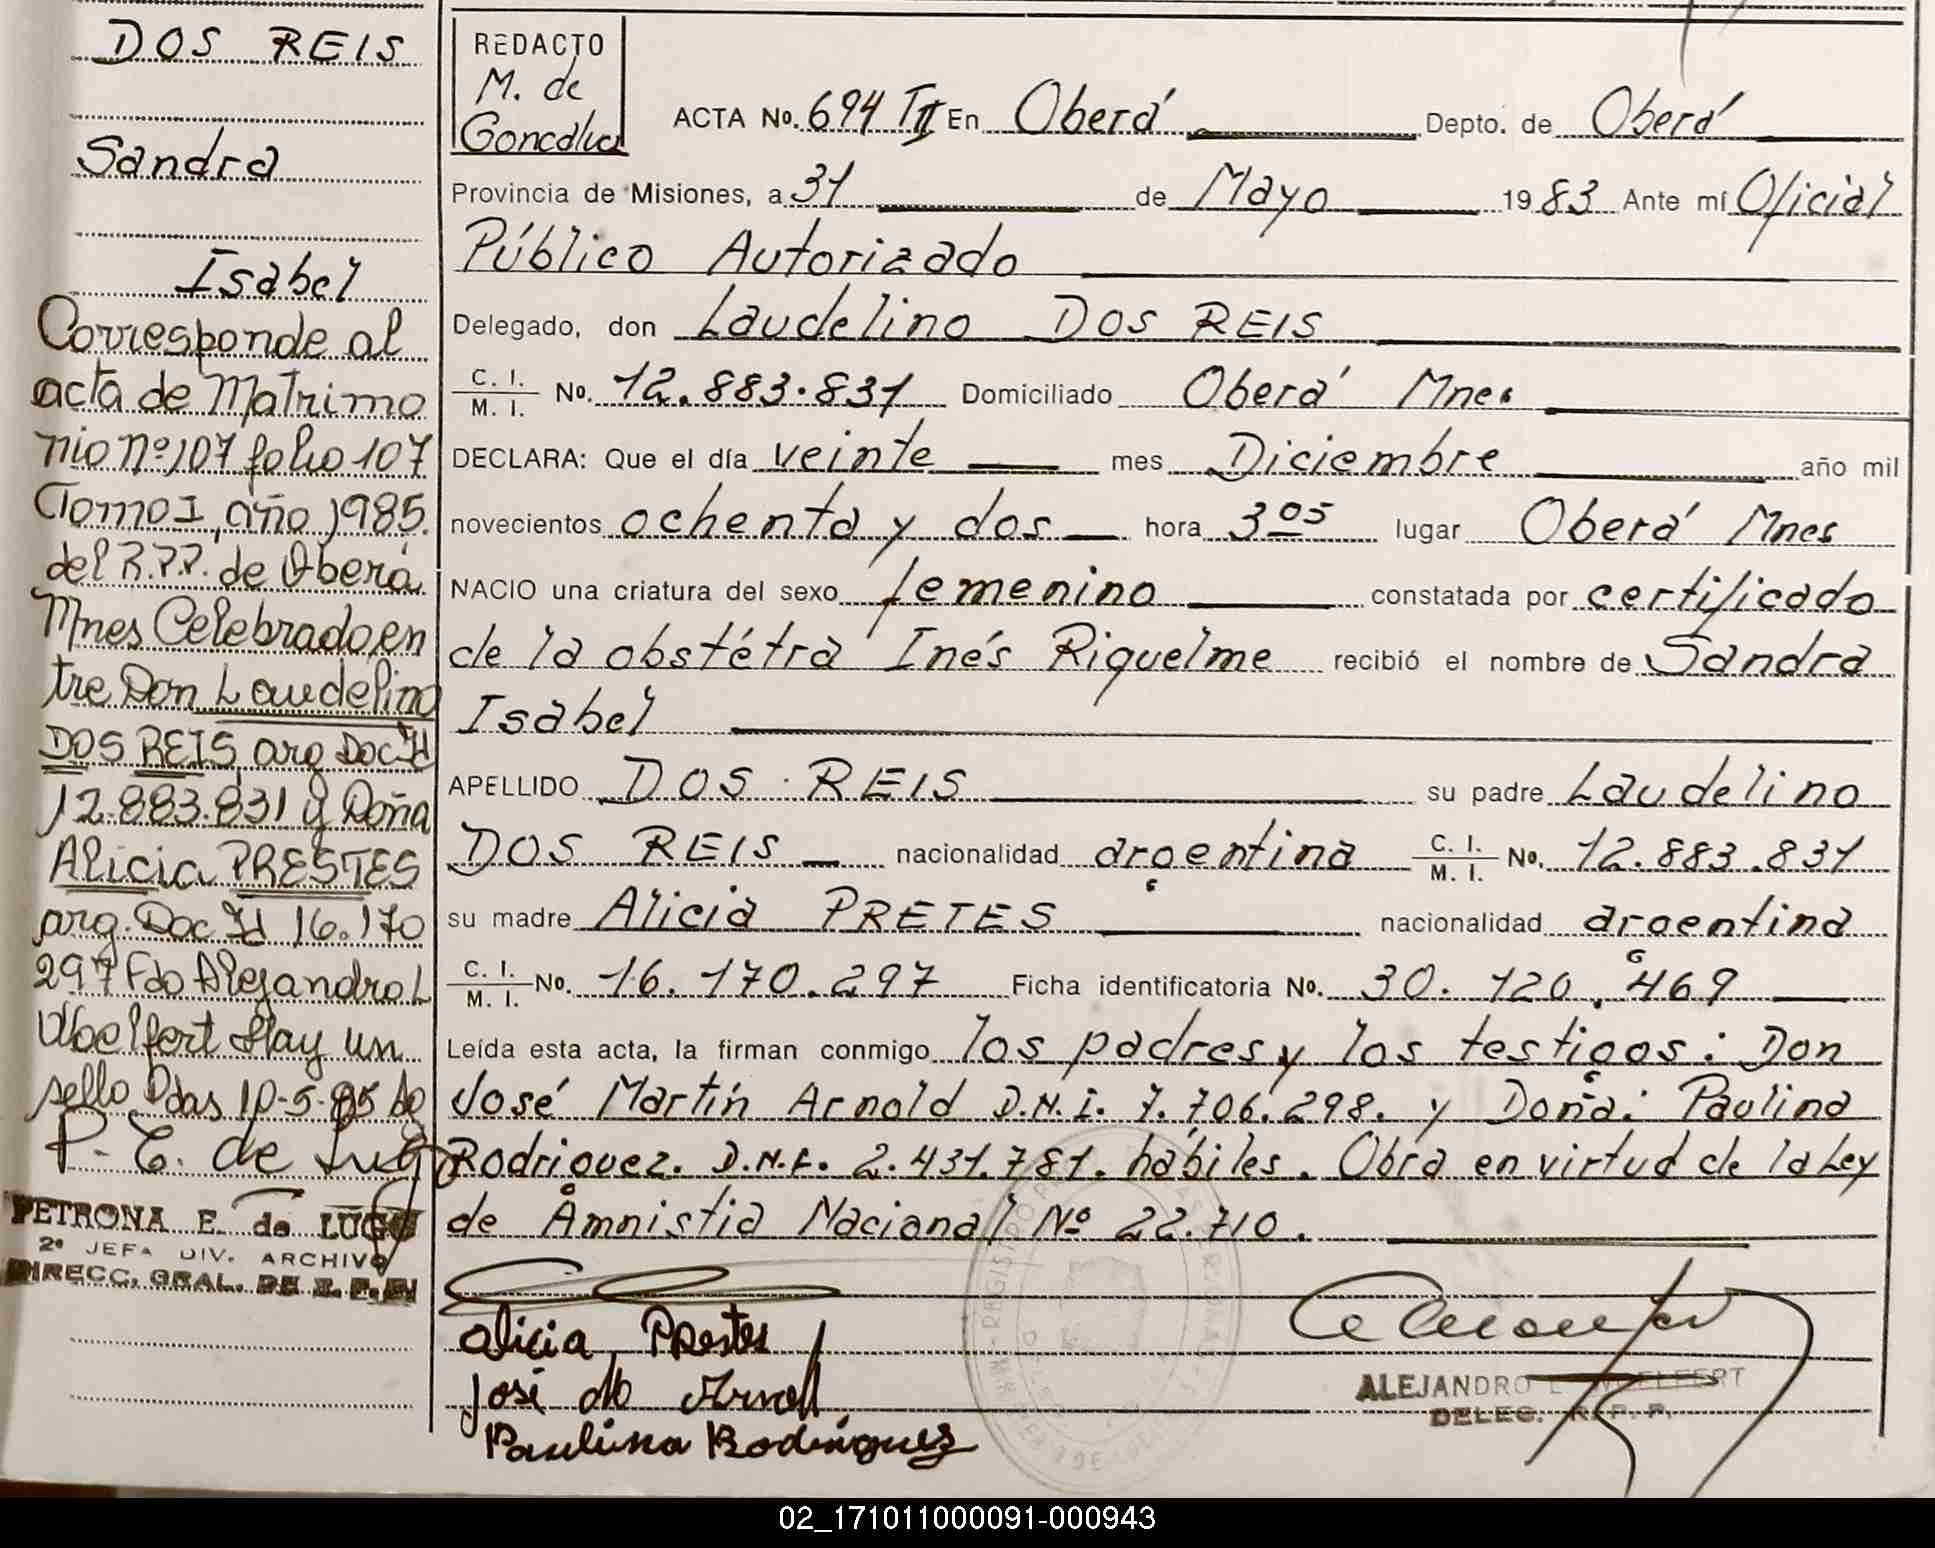 DOS REIS
Sandra
Isabel
Corresponde al
acta de Matrimo
nio nº 107 folio 107
Tomo I, año 1985.
del R.P.P. de Oberá
Mnes Celebrado en
tre Don Laudelino
DOS REIS arg Doc Id
12.883.831 y Doña
Alicia PRESTES
arg. Doc Id 16.170
297 Fdo Alejandro L
Woelfert Hay un
sello Pdas 10-5-85
P. E. de Lugo
PETRONA E. de LUGO
2ª JEFA DIV. ARCHIVO
DIRECC. GRAL. DE R. P. P.
REDACTO
M. de
Goncalvez
ACTA No. 694 TII En Oberá Depto. de Oberá
Provincia de Misiones, a 31 de Mayo 1983 Ante mí Oficial
Público Autorizado
Delegado, don Laudelino DOS REIS
C. I. / M. I. No. 12.883.831 Domiciliado Oberá Mnes
DECLARA: Que el día veinte mes Diciembre año mil
novecientos ochenta y dos hora 3 05 lugar Oberá Mnes
NACIO una criatura del sexo femenino constatada por certificado
de la obstétra Inés Riquelme recibió el nombre de Sandra
Isabel
APELLIDO DOS REIS su padre Laudelino
DOS REIS nacionalidad argentina C. I. / M. I. No. 12.883.831
su madre Alicia PRETES nacionalidad argentina
C. I. / M. I. No. 16.170.297 Ficha identificatoria No. 30.120.469
Leída esta acta, la firman conmigo los padres y los testigos: Don
José Martín Arnold D.N.I. 7.706.298. y Doña: Paulina
Rodriguez. D.N.I. 2.431.781. hábiles. Obra en virtud de la Ley
de Amnistia Nacional Nº 22.710.
alicia PRestes
José M Arnold
Paulina Rodriguez
ALEJANDRO L WOELFERT
DELEG. R. P. P.
02_171011000091-000943